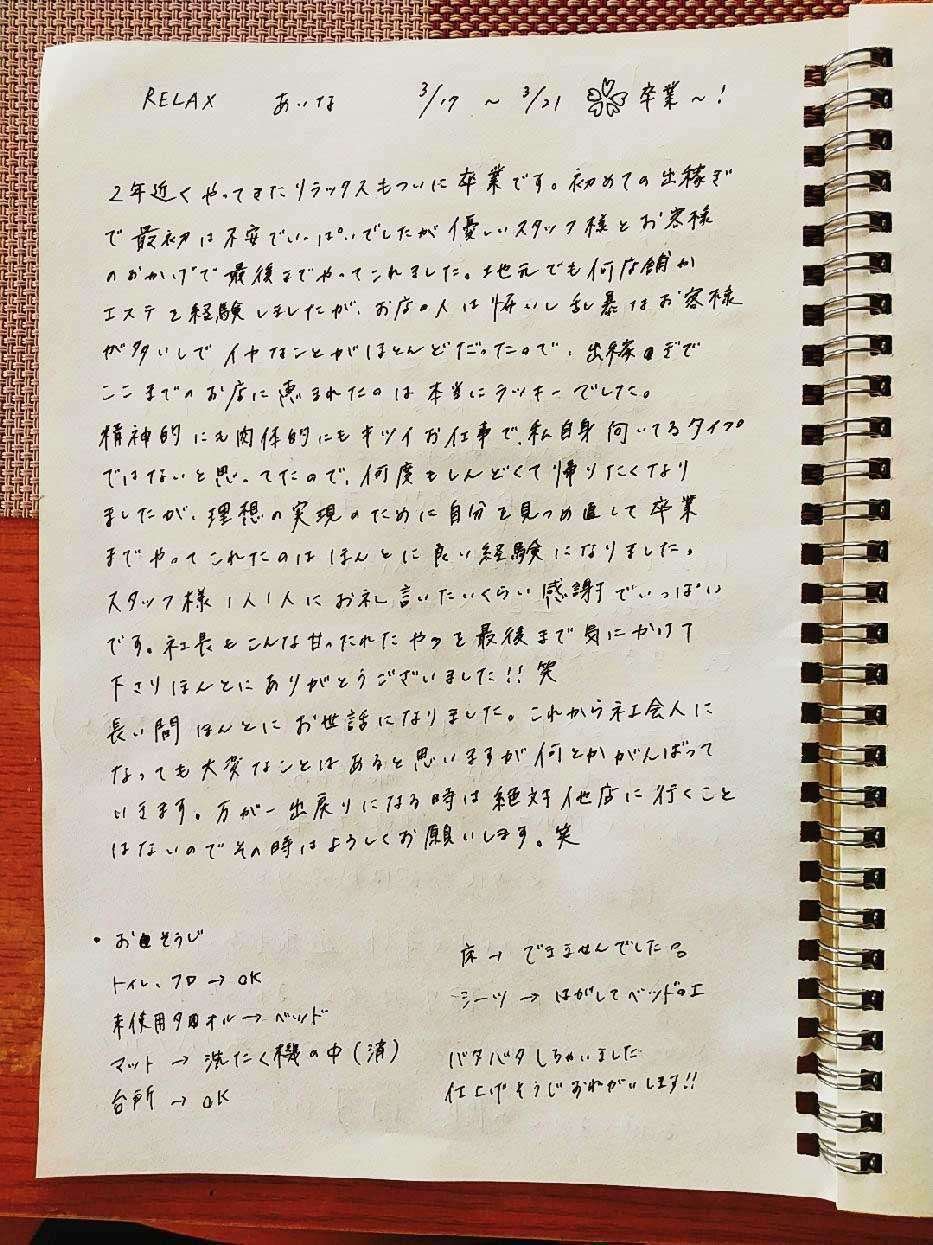 RELAX あいな 3/17 ~ 3/21 卒業~!
2年近くやってきたリラックスもついに卒業です。初めての出稼ぎ
で最初は不安でいっぱいでしたが優しいスタッフ様とお客様
のおかげで最後までやってこれました。地元でも何店舗か
エステを経験しましたが、お店の人は怖いし乱暴なお客様
が多いしでイヤなことがほとんどだったので、出稼ぎで
ここまでのお店に恵まれたのは本当にラッキーでした。
精神的にも肉体的にもキツイお仕事で私自身向いてるタイプ
ではないと思ってたので、何度もしんどくて帰りたくなり
ましたが、理想の実現のために自分を見つめ直して卒業
までやってこれたのはほんとに良い経験になりました。
スタッフ様1人1人にお礼言いたいくらい感謝でいっぱい
です。社長もこんな甘ったれたやつを最後まで気にかけて
下さりほんとにありがとうございました!!笑
長い間ほんとにお世話になりました。これから社会人に
なっても大変なことはあると思いますが何とかがんばって
いきます。万が一出戻りになる時は絶対他店に行くこと
はないのでその時はよろしくお願いします。笑
・おそうじ
トイレ、フロ→OK
未使用タオル→ベッド
マット→洗たく機の中(済)
台所→OK
床→できませんでした
シーツ→はがしてベッドの上
バタバタしちゃいました
仕上げそうじおねがいします!!